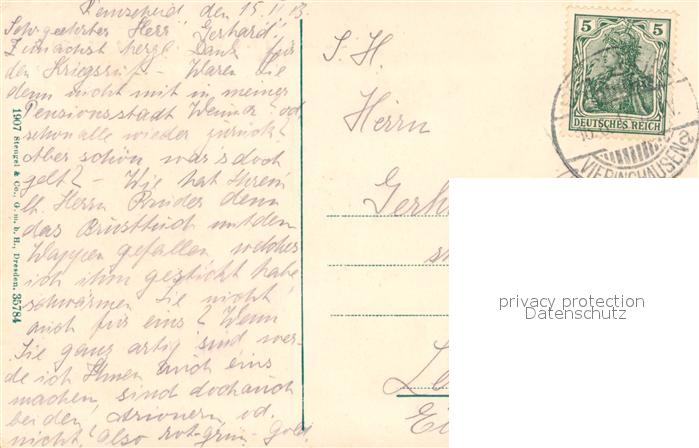 Remscheid, den 15.II.13.
Sehr geehrter Herr Gerhard!
Zunächst herzl. Dank für
den Kriegsruf. – Waren Sie
denn nicht mit in meiner
Pensionsstadt Weimar? od.
schon alle wieder zurück?
Aber schön war's doch
gelt? – Wie hat Ihrem
lb. Herrn Bruder denn
das Brusttuch mit den
Wappen gefallen welches
ich ihm gestickt habe
schwärmen Sie nicht
auch für eins? Wenn
Sie ganz artig sind wer-
de ich Ihnen auch eins
machen, sind doch auch
bei den
nicht! also rot-grün-Gold
1907 Stengel & Co., G. m. b. H., Dresden. 35784
S. H.
Herrn
Gerh
5 5
DEUTSCHES REICH
VIERINGHAUSEN
privacy protection
Datenschutz